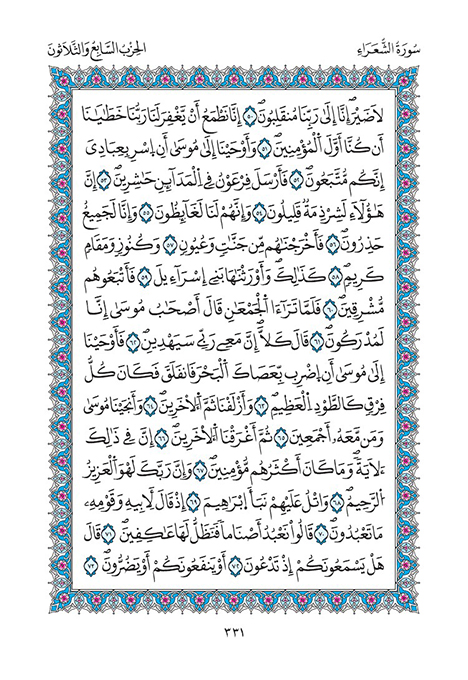 سُورَةُ الشُّعَرَاءِ
الحِزْبُ السَّابِعُ وَالثَّلَاثُونَ
لَا ضَيْرَ إِنَّا إِلَىٰ رَبِّنَا مُنقَلِبُونَ ٥٠ إِنَّا نَطْمَعُ أَنْ يَغْفِرَ لَنَا رَبُّنَا خَطَـٰيَـٰنَا
أَن كُنَّا أَوَّلَ الْمُؤْمِنِينَ ٥١ وَأَوْحَيْنَا إِلَىٰ مُوسَىٰ أَنِ اسْرِ بِعِبَادِيَ
إِنَّكُم مُّتَّبَعُونَ ٥٢ فَأَرْسَلَ فِرْعَوْنُ فِي الْمَدَآئِنِ حَـٰشِرِينَ ٥٣ إِنَّ
هَـٰؤُلَآءِ لَشِرْذِمَةٌ قَلِيلُونَ ٥٤ وَإِنَّهُمْ لَنَا لَغَآئِظُونَ ٥٥ وَإِنَّا لَجَمِيعٌ
حَذِرُونَ ٥٦ فَأَخْرَجْنَـٰهُم مِّن جَنَّـٰتٍ وَعُيُونٍ ٥٧ وَكُنُوزٍ وَمَقَامٍ
كَرِيمٍ ٥٨ كَذَٰلِكَ وَأَوْرَثْنَـٰهَا بَنِي إِسْرَآءِيلَ ٥٩ فَأَتْبَعُوهُم
مُّشْرِقِينَ ٦٠ فَلَمَّا تَرَٰٓءَا الْجَمْعَـٰنِ قَالَ أَصْحَـٰبُ مُوسَىٰ إِنَّا
لَمُدْرَكُونَ ٦١ قَالَ كَلَّا إِنَّ مَعِي رَبِّي سَيَهْدِينِ ٦٢ فَأَوْحَيْنَا
إِلَىٰ مُوسَىٰ أَنِ اضْرِب بِّعَصَاكَ الْبَحْرَ فَانفَلَقَ فَكَانَ كُلُّ
فِرْقٍ كَالطَّوْدِ الْعَظِيمِ ٦٣ وَأَزْلَفْنَا ثَمَّ الْأَخَرِينَ ٦٤ وَأَنجَيْنَا مُوسَىٰ
وَمَن مَّعَهُ أَجْمَعِينَ ٦٥ ثُمَّ أَغْرَقْنَا الْأَخَرِينَ ٦٦ إِنَّ فِي ذَٰلِكَ
لَأَيَةً وَمَا كَانَ أَكْثَرُهُم مُّؤْمِنِينَ ٦٧ وَإِنَّ رَبَّكَ لَهُوَ الْعَزِيزُ
الرَّحِيمُ ٦٨ وَاتْلُ عَلَيْهِمْ نَبَأَ إِبْرَٰهِيمَ ٦٩ إِذْ قَالَ لِأَبِيهِ وَقَوْمِهِ
مَا تَعْبُدُونَ ٧٠ قَالُوا نَعْبُدُ أَصْنَامًا فَنَظَلُّ لَهَا عَـٰكِفِينَ ٧١ قَالَ
هَلْ يَسْمَعُونَكُمْ إِذْ تَدْعُونَ ٧٢ أَوْ يَنفَعُونَكُمْ أَوْ يَضُرُّونَ ٧٣
٣٣١